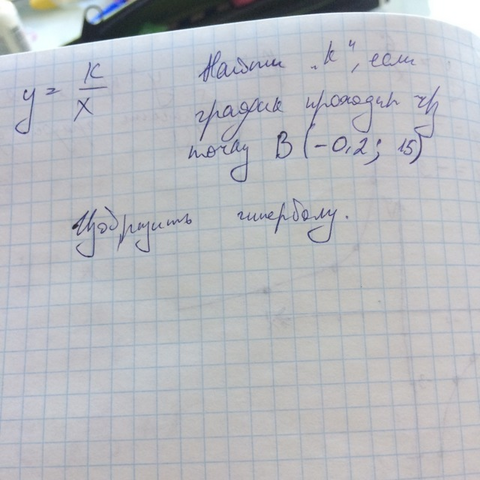 y = K/X
Найти „к", если
график проходит чз
точку В (-0,2; 15)
Изобразить гиперболу.